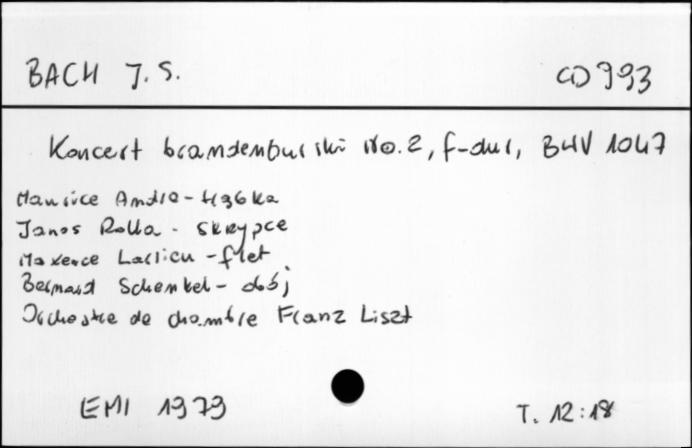 BACH J. S. CD 993
Koncert brandenburski No. 2, F-dur, BWV 1047
Maurice André - trąbka
Janos Rolla - skrzypce
Maxence Larrieu - flet
Bernard Schenkel - obój
Orchestre de chambre Franz Liszt
EMI 1979 T. 12:18